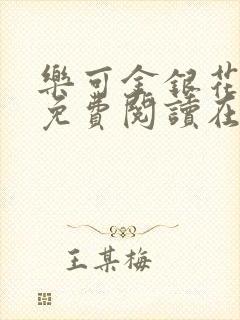 樂可金銀花
免費閱讀在
王某梅